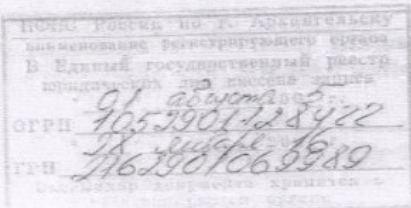 ИФНС России по г. Архангельску
наименование регистрирующего органа
В Единый государственный реестр
юридических лиц внесена запись
01 августа 2005 г.
ОГРН 1052901128422
28 января 16
ГРН 2162901069989
Экземпляр документа хранится в
регистрирующем органе